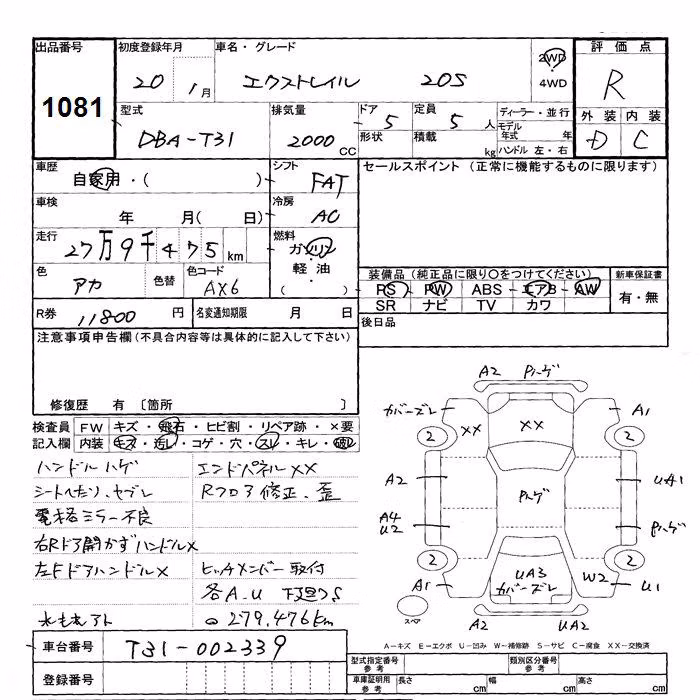 出品番号 初度登録年月 車名・グレード 2WD 評価点
1081 20 1月 エクストレイル 20S 4WD R
型式 排気量 ドア 5 定員 5 人 ディーラー・並行 外装 内装
DBA-T31 2000 CC 形状 積載 kg モデル年式 年 D C
ハンドル 左・右
車歴 シフト セールスポイント (正常に機能するものに限ります)
自家用・( ) FAT
車検 年 月( 日) 冷房 AC
走行 27万9千475km 燃料 ガソリン・軽油 ( )
色 アカ 色替 色コード AX6
装備品 (純正品に限り○をつけてください) 新車保証書
PS PW ABS エアB AW 有・無
SR ナビ TV カワ
R券 11800 円 名変通知期限 月 日 後日品
注意事項申告欄 (不具合内容等は具体的に記入して下さい)
修復歴 有 〔箇所 〕
検査員 FW キズ・飛石・ヒビ割・リペア跡・×要
記入欄 内装 キズ・汚レ・コゲ・穴・スレ・キレ・破レ
ハンドルハゲ エンドパネルXX
シートヘタリ、セブレ Rフロア修正、歪
電格ミラー不良
右Rドア開かずハンドルX
左FドアハンドルX ヒッチメンバー取付
各A.U 下廻りS
279,476km
A2 Pハゲ
カバーズレ XX XX A1
2 2
A2 Pハゲ UA1
A4 U2 Pハゲ
2 2
A1 UA3 カバーズレ W2 U1
スペア A2 UA2
A-キズ E-エクボ U-凹み W-補修跡 S-サビ C-腐食 XX-交換済
車台番号 T31-002339
登録番号
型式指定番号 参考 類別区分番号 参考
車庫証明用 参考 長さ cm 幅 cm 高さ cm